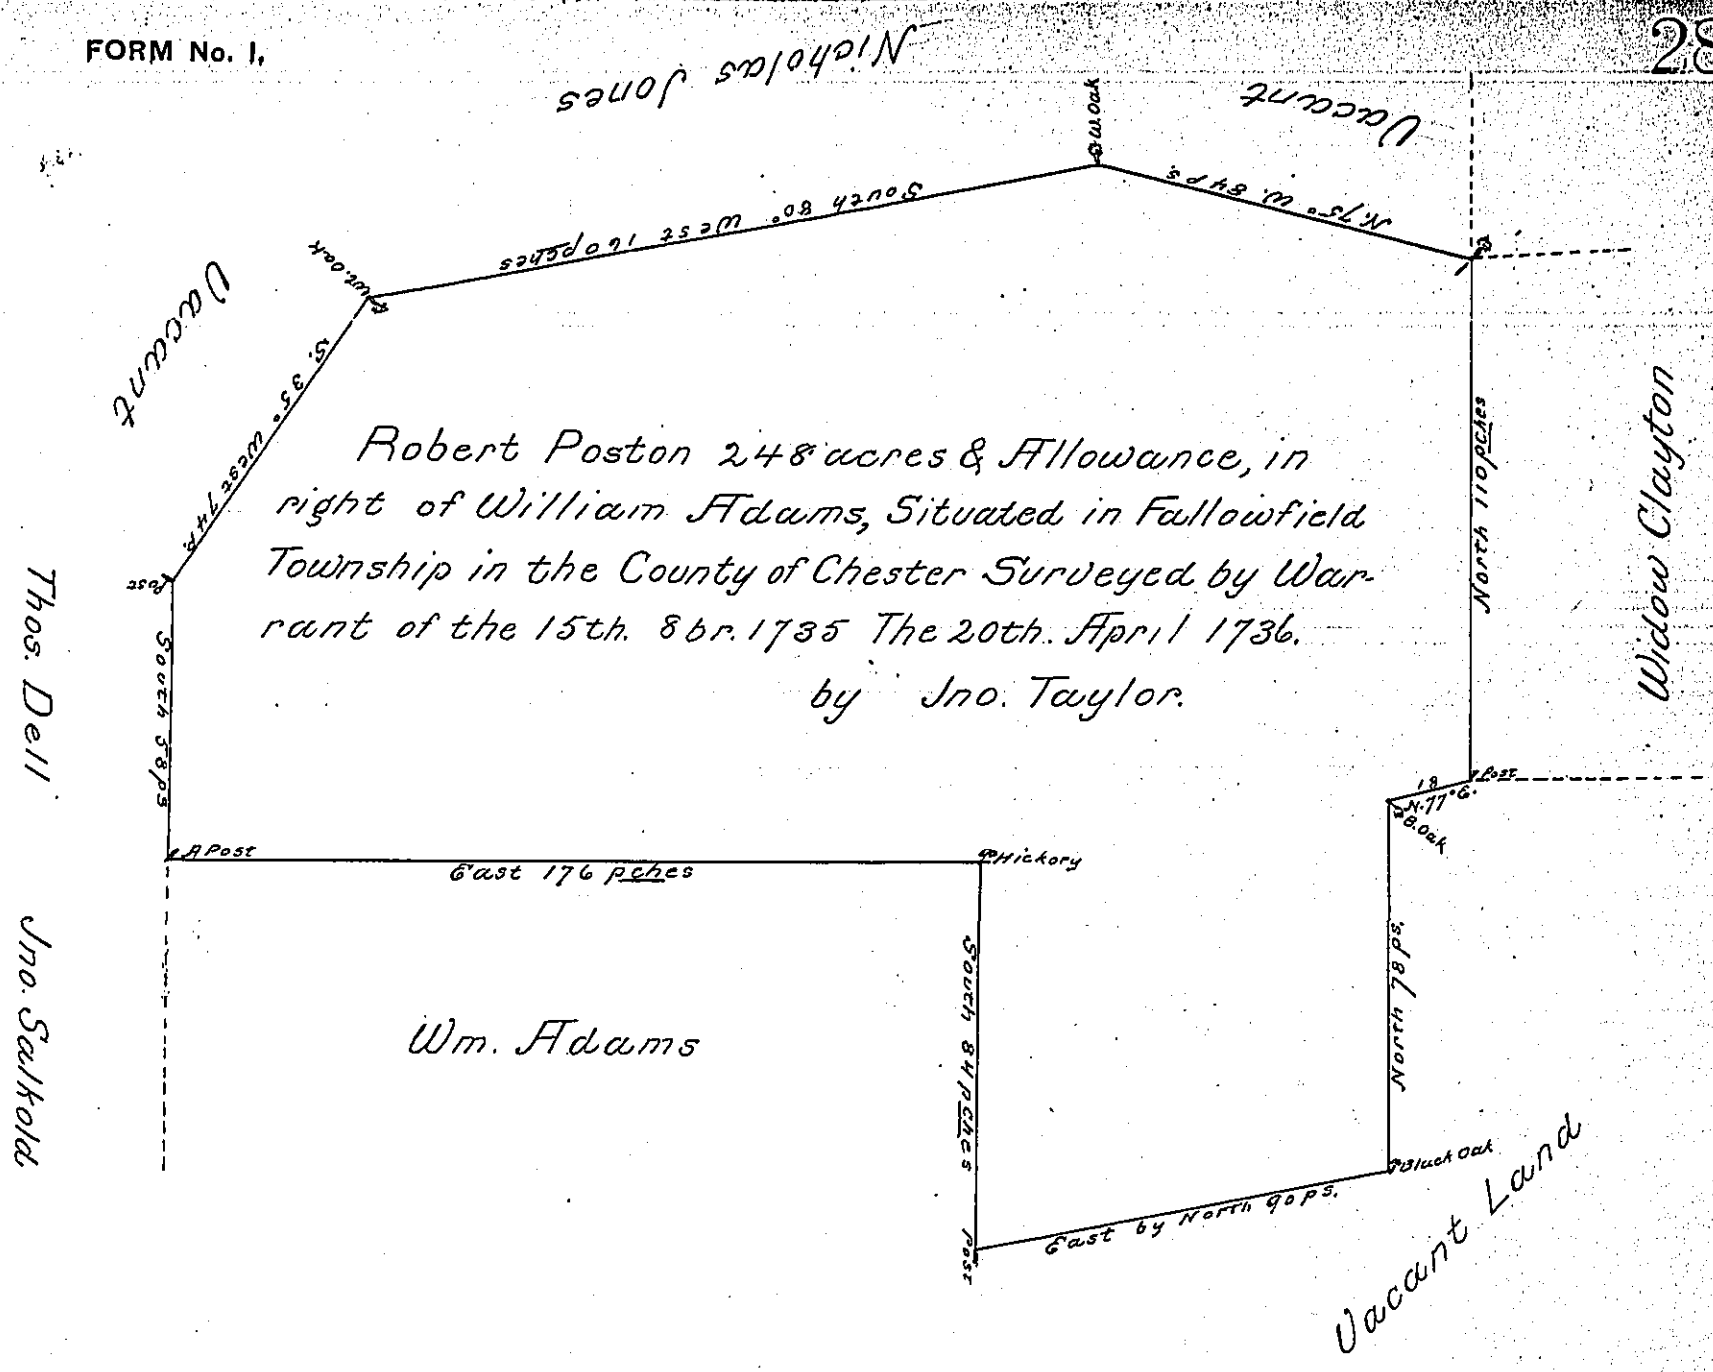 FORM No. 1,
28
Nicholas Jones
Vacant
B.W.Oak
N.75° W. 84 ps
South 80° West 160 pches
Wt.Oak
Vacant
S. 35° West 74 P.
North 110 pches
Widow Clayton
Robert Poston 248 acres & Allowance, in
right of William Adams, Situated in Fallowfield
Township in the County of Chester Surveyed by War-
rant of the 15th. 8br. 1735 The 20th. April 1736.
by Jno. Taylor.
Post
Thos. Dell
South 58 ps
18
N.77° E.
Post
B.Oak
A Post
East 176 pches
Hickory
Jno. Salkold
Wm. Adams
South 84 pches
North 78 ps.
Black Oak
East by North 90 ps.
Post
Vacant Land